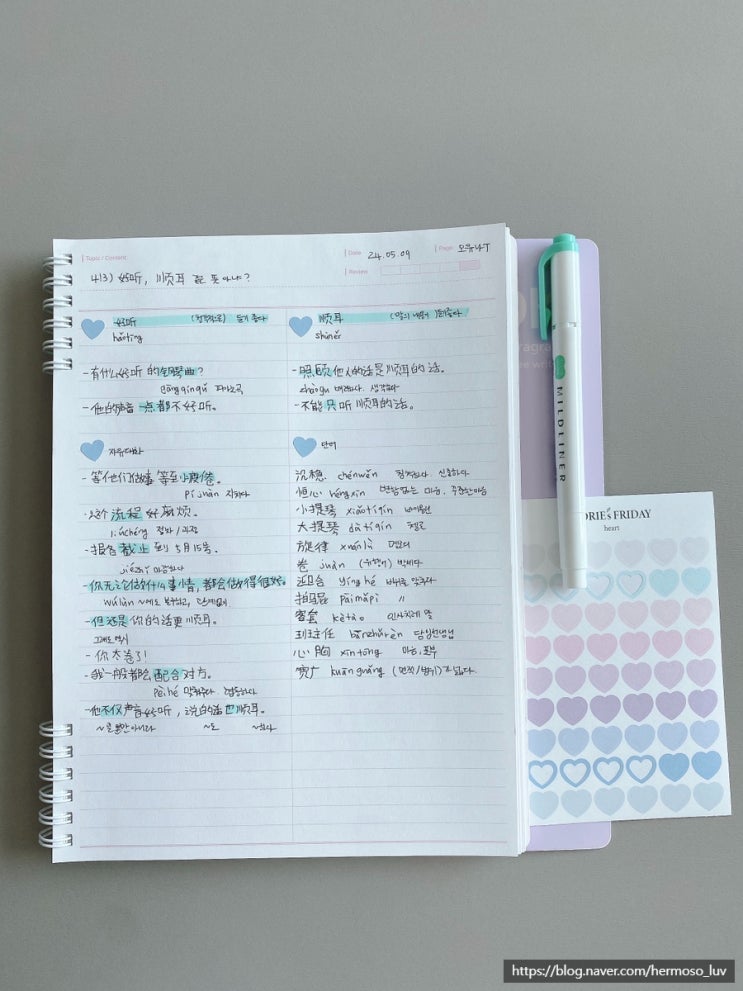 Topic / Content
Date 24.05.09
Page 오유나T
413) 好听, 顺耳 로 못 아냐?
Review
好听 (청각적으로) 듣기 좋다
hǎotīng
- 有什么好听的钢琴曲?
gāngqínqǔ 피아노곡
- 他的声音一点都不好听。
顺耳 (말의 내용이) 듣기좋다
shùn'ěr
- 照顾他人的话是顺耳的话。
zhàogù 배려하다. 생각하다
- 不能只听顺耳的话。
자유대화
- 等他们做事等至小疲倦。
píjuàn 지치다
- 这个流程好麻烦。
liúchéng 절차/과정
- 报告截止到5月15号。
jiézhǐ 마감하다
- 你无论做什么事情, 都会做得很好。
wúlùn ~에도 불구하고, 관계없이
- 但还是你的话更顺耳。
그래도 역시
- 你太卷了!
- 我一般都会配合对方。
pèihé 맞춰주다. 협동하다
- 他不仅声音好听, 说的话也顺耳。
~ 뿐만 아니라 ~도 ~하다
단어
沉稳 chénwěn 침착하다 신중하다
恒心 héngxīn 변함없는 마음, 꾸준한마음
小提琴 xiǎotíqín 바이올린
大提琴 dàtíqín 첼로
旋律 xuánlǜ 멜로디
卷 juàn
迎合 yínghé 비위를 맞추다
拍马屁 pāimǎpì 〃
客套 kètào 인사치레 말
班主任 bānzhǔrèn 담임선생님
心胸 xīnxōng 마음, 포부
宽广 kuānguǎng (면적/범위)가 넓다
MILDLINER
FRIDAY
heart
https://blog.naver.com/hermoso_luv